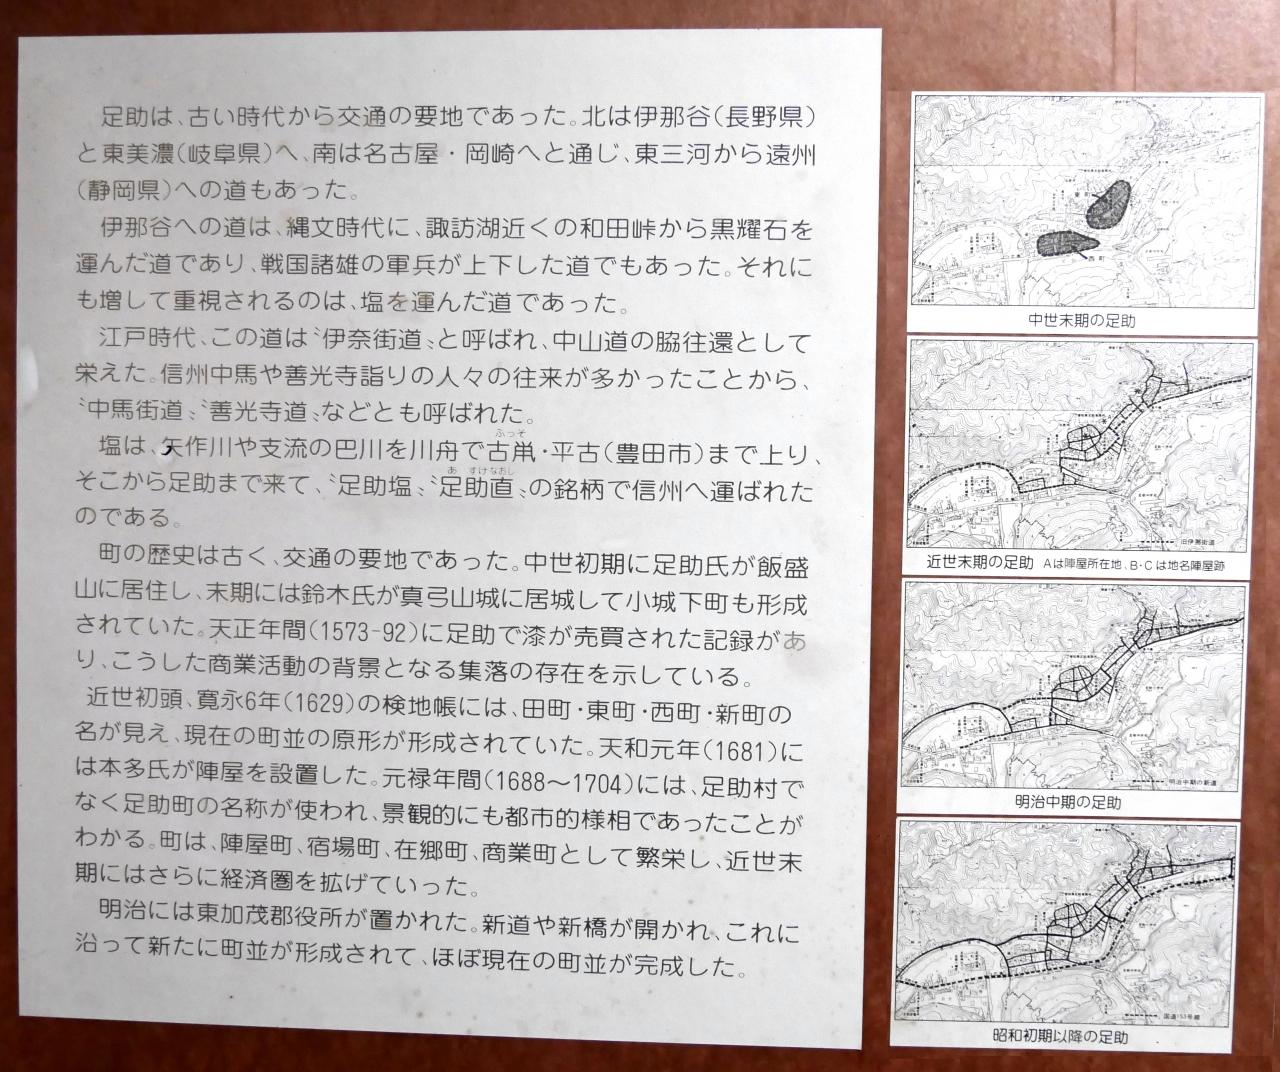 足助は、古い時代から交通の要地であった。北は伊那谷（長野県）
と東美濃（岐阜県）へ、南は名古屋・岡崎へと通じ、東三河から遠州
（静岡県）への道もあった。
伊那谷への道は、縄文時代に、諏訪湖近くの和田峠から黒耀石を
運んだ道であり、戦国諸雄の軍兵が上下した道でもあった。それに
も増して重視されるのは、塩を運んだ道であった。
江戸時代、この道は〝伊奈街道〟と呼ばれ、中山道の脇往還として
栄えた。信州中馬や善光寺詣りの人々の往来が多かったことから、
〝中馬街道〟〝善光寺道〟などとも呼ばれた。
塩は、矢作川や支流の巴川を川舟で古鼡・平古（豊田市）まで上り、
そこから足助まで来て、〝足助塩〟〝足助直〟の銘柄で信州へ運ばれた
のである。
町の歴史は古く、交通の要地であった。中世初期に足助氏が飯盛
山に居住し、末期には鈴木氏が真弓山城に居城して小城下町も形成
されていた。天正年間（1573-92）に足助で漆が売買された記録があ
り、こうした商業活動の背景となる集落の存在を示している。
近世初頭、寛永6年（1629）の検地帳には、田町・東町・西町・新町の
名が見え、現在の町並の原形が形成されていた。天和元年（1681）に
は本多氏が陣屋を設置した。元禄年間（1688～1704）には、足助村で
なく足助町の名称が使われ、景観的にも都市的様相であったことが
わかる。町は、陣屋町、宿場町、在郷町、商業町として繁栄し、近世末
期にはさらに経済圏を拡げていった。
明治には東加茂郡役所が置かれた。新道や新橋が開かれ、これに
沿って新たに町並が形成されて、ほぼ現在の町並が完成した。
東町
西町
中世末期の足助
旧伊那街道
近世末期の足助 Aは陣屋所在地、B・Cは地名陣屋跡
明治中期の新道
明治中期の足助
国道153号線
昭和初期以降の足助